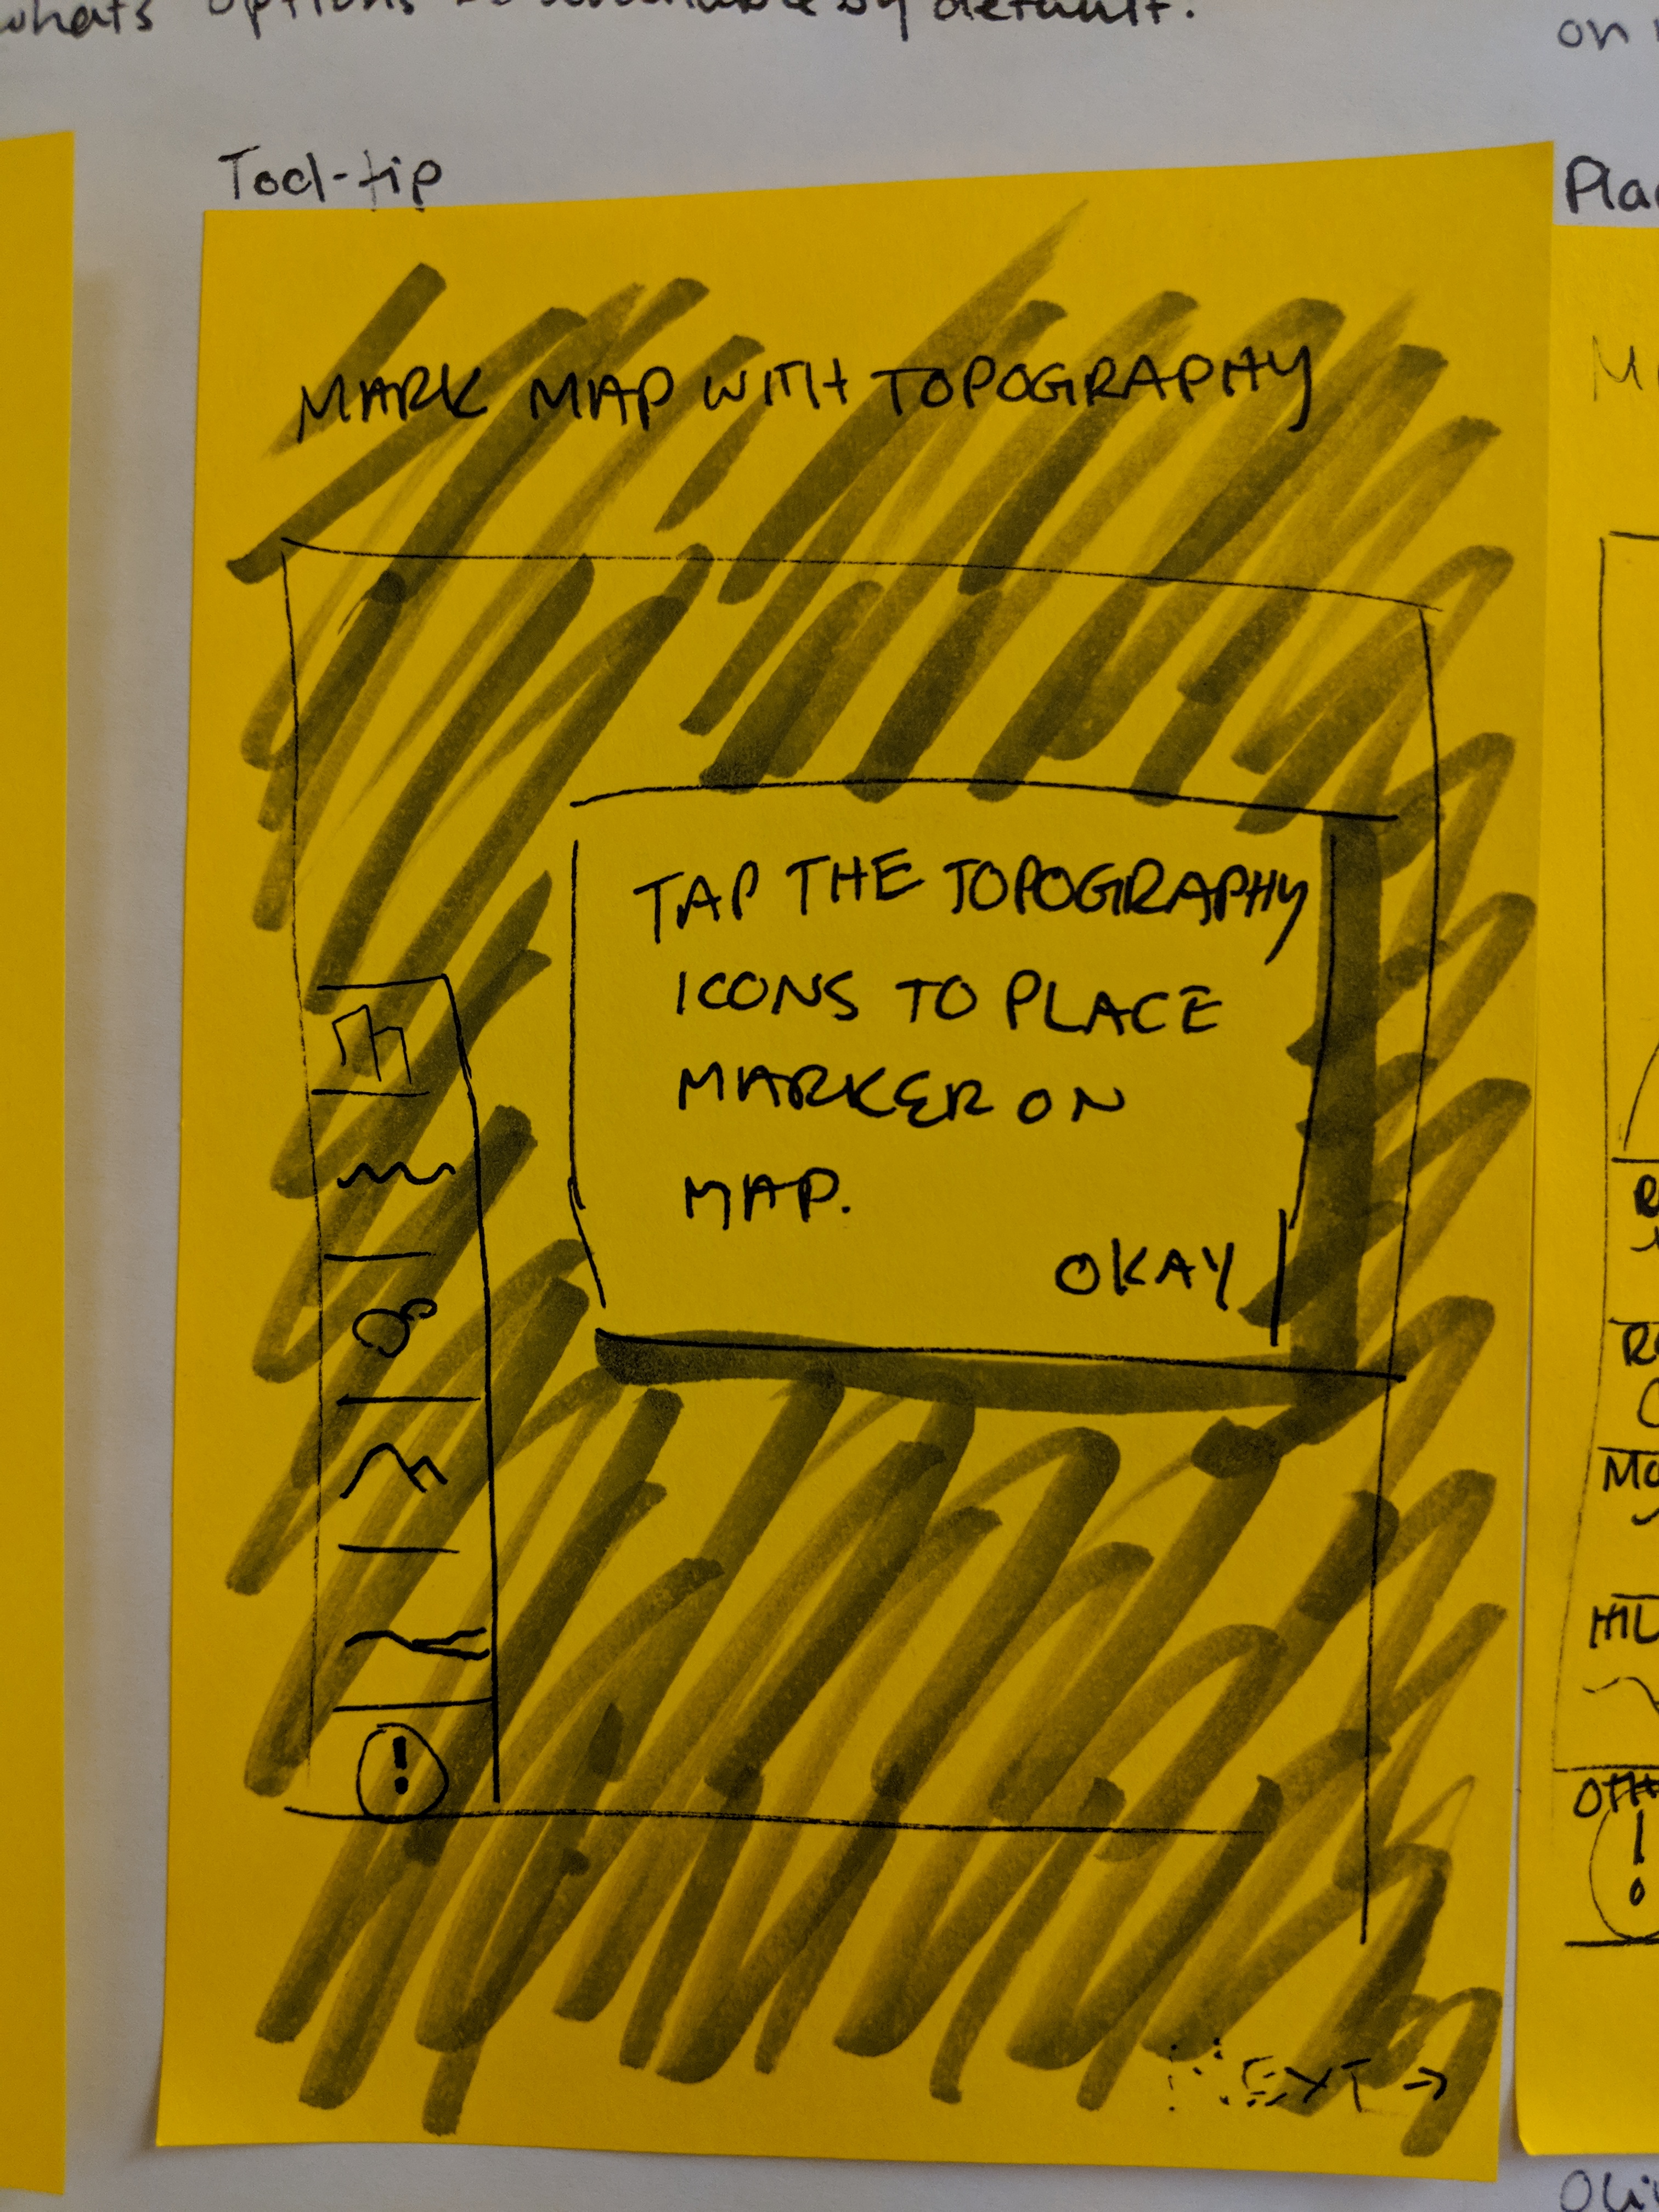 whats options
by default.
on
Tool-tip
Pla
MARK MAP WITH TOPOGRAPHY
M
TAP THE TOPOGRAPHY
ICONS TO PLACE
MARKER ON
MAP.
OKAY
!
NEXT →
R
MO
HIL
OTH
!